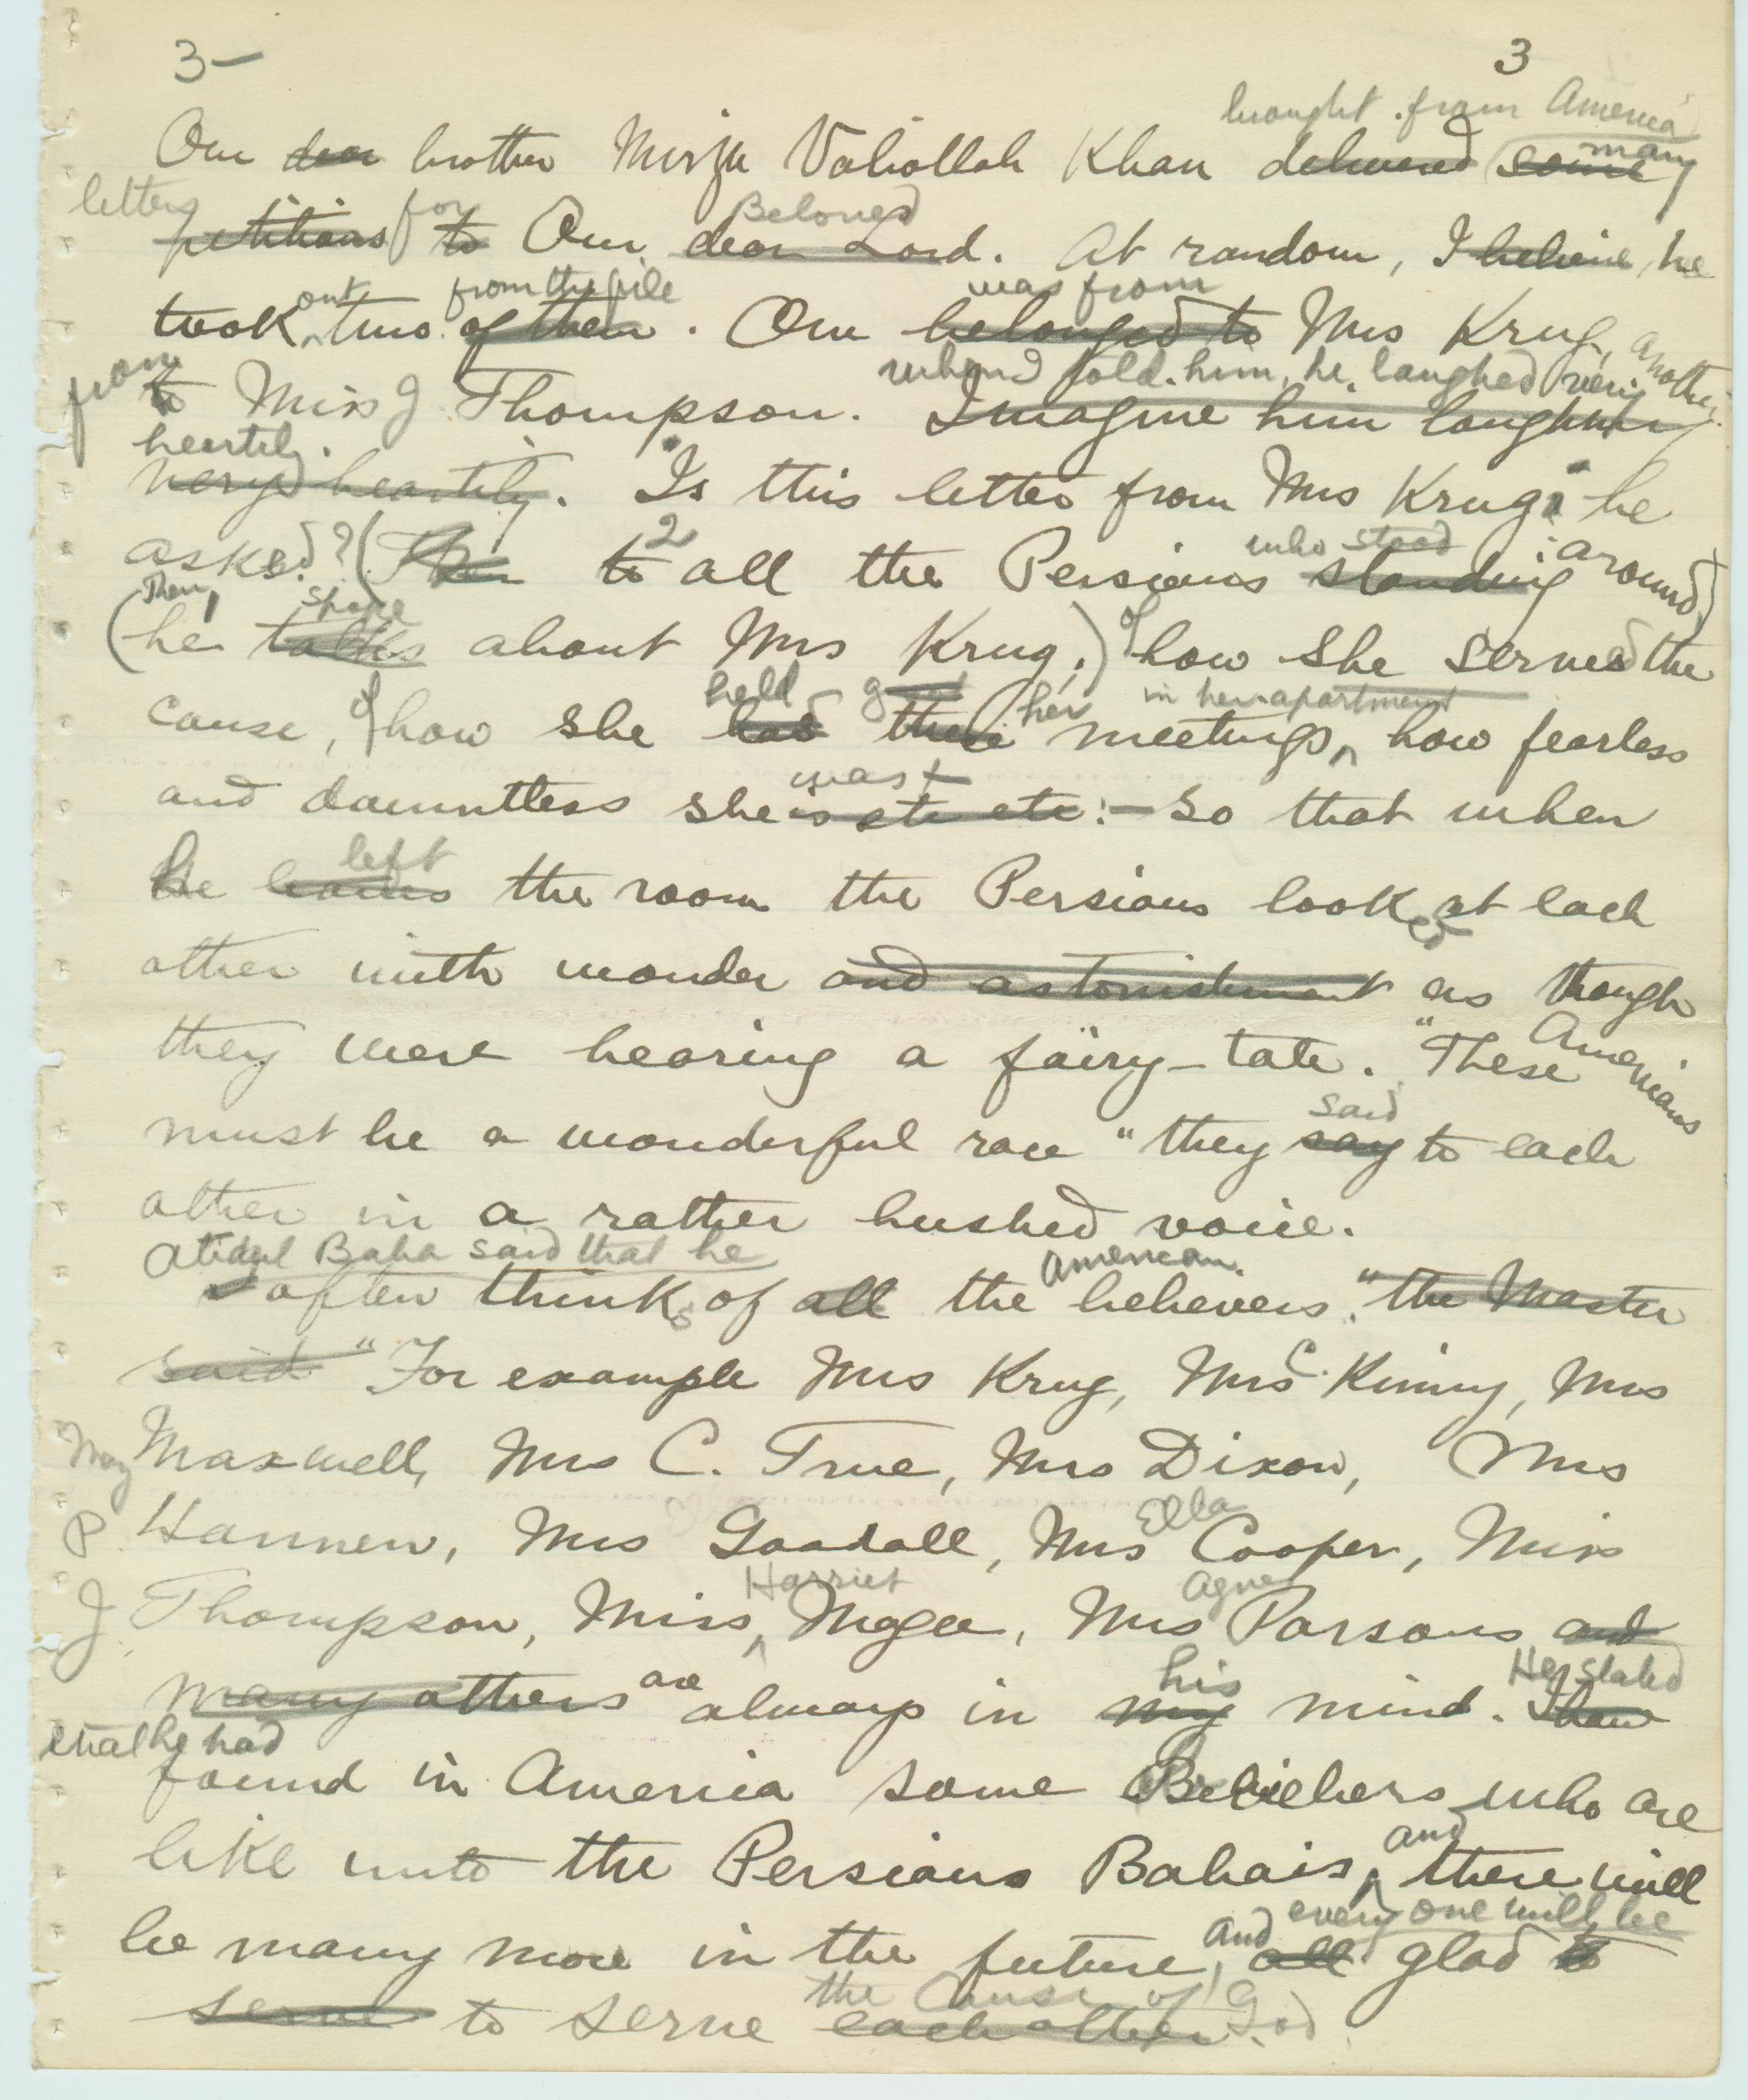 3— 3
brought from America
Our dear brother Mirza Valiollah Khan delivered some many
letters for Beloved
petitions to Our dear Lord. At random, I believe, he
out from the pile was from
took two of them. One belonged to Mrs Krug, another
from when I told him, he laughed very
to Miss J Thompson. Imagine him laughing
heartily.
very heartily. "Is this letter from Mrs Krug" he
2 who stood around
asked? (Then to all the Persians standing
Then, spoke
(he talks about Mrs Krug,) of how she served the
held her in her apartment
cause, of how she had these meetings, how fearless
was
and dauntless she is etc etc:— So that when
left
he leaves the room the Persians looked at each
other with wonder and astonishment as though
they were hearing a fairy-tale. "These Americans
said
must be a wonderful race" they say to each
other in a rather hushed voice.
Abdul Baha said that he American
often thinks of all the believers." the Master
said "For example Mrs Krug, Mrs C. Kinny, Mrs
May Maxwell, Mrs C. True, Mrs Dixon, Mrs
Ella
P. Hannen, Mrs Goodall, Mrs Cooper, Miss
Harriet Agnes
J Thompson, Miss Magee, Mrs Parsons and
are his He stated
many others always in my mind. I have
that he had
found in America some Believers who are
and
like unto the Persians Bahais, there will
and every one will be
be many more in the future, all glad to
the Cause of God.
serve to serve each other.